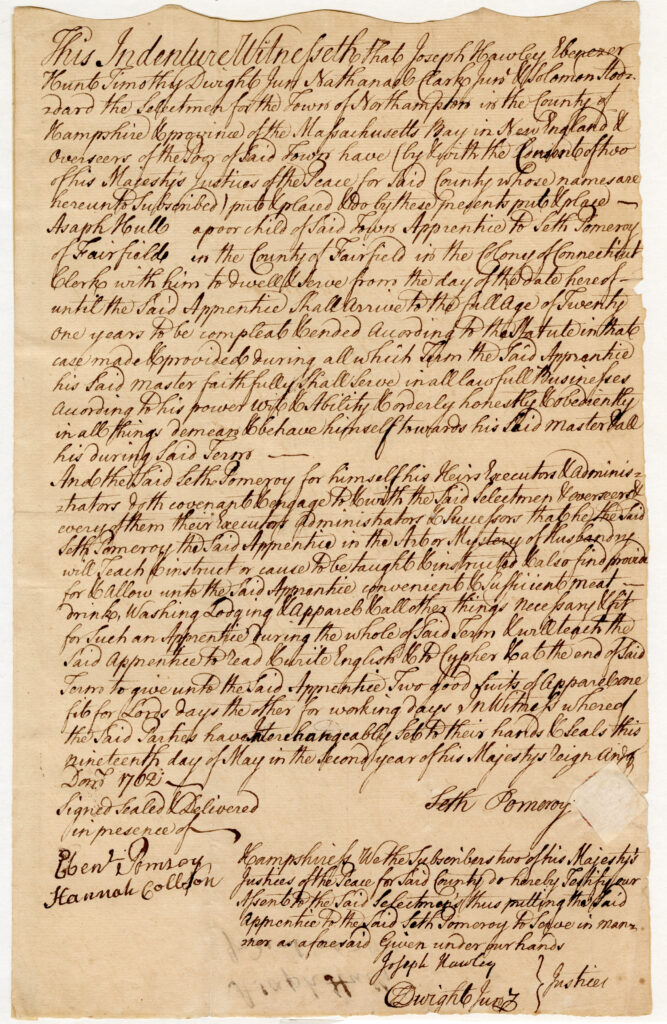 This Indenture Witnesseth that Joseph Hawley Ebenezer
Hunt Timothy Dwight Junr Nathanael Clark Junr & Solomon Stod-
-dard the Selectmen for the Town of Northampton in the County of
Hampshire & province of the Massachusetts Bay in New England &
Overseers of the Poor of Said Town have (by & with the Consent of two
of his Majestys Justices of the Peace for Said County whose names are
hereunto Subscribed) put & placed & do by these presents put & place
Asaph Hull a poor child of Said Town Apprentice to Seth Pomeroy
of Fairfield in the County of Fairfield in the Colony of Connecticut
Clerk with him to dwell & Serve from the day of the Date hereof
until the Said Apprentice Shall Arrive to the full Age of Twenty
One years to be compleat & ended Acording to the Statute in that
case made & provided during all which Term the Said Apprentice
his Said master faithfully Shall Serve in all lawfull Businesses
Acording to his power Wit & Ability & orderly honestly & obediently
in all things demean & behave himself towards his Said master & all
his during Said Term
And the Said Seth Pomeroy for himself his Heirs Executors & Adminis-
-trators doth covenant & engage to & with the Said Selectmen & overseers &
every of them their Executors administrators & Successors that he the Said
Seth Pomeroy the Said Apprentice in the Art or Mystery of Husbandry
will Teach & instruct or cause to be taught & instructed & also find provide
for & Allow unto the Said Apprentice convenient & Sufficient meat
drink, Washing Lodging & Apparel & all other things necessary & fit
for Such an Apprentice during the whole of Said Term & will teach the
Said Apprentice to read & write English & to Cypher & at the end of Said
Term to give unto the Said Apprentice Two good Suits of Apparel one
fit for Lords days the other for working days In Witness whereof
the Said Parties have Interchangeably Set to their hands & Seals this
nineteenth day of May in the Second year of his Majestys Reign Anno
Domi 1762
Signed Sealed & Delivered
in presence of
Seth Pomeroy
Ebenr Pomroy
Hannah
Hampshire Ss We the Subscribers two of his Majesty's
Justices of the Peace for Said County do hereby Testify our
Assent to the Said Selectmens thus putting the Said
Apprentice to the Said Seth Pomeroy to Serve in man-
-ner as aforesaid Given under our hands
Joseph Hawley
Dwight Junr } Justices